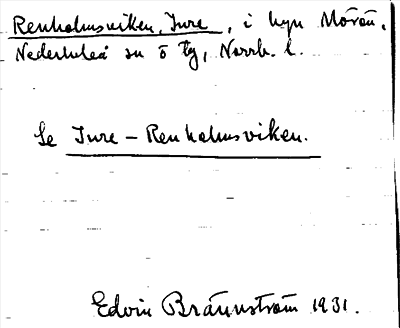 Renholmsviken, Inre, i byn Mörön,
Nederluleå sn ö tg, Norrb. l.
Se Inre – Renholmsviken.
Edvin Brännström 1931.